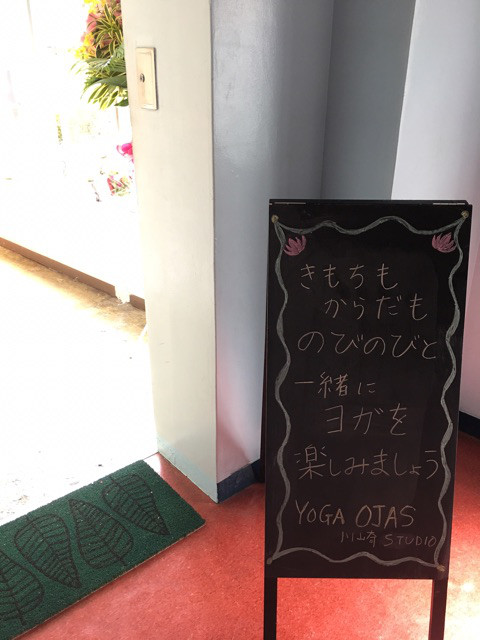 きもちも
からだも
のびのびと
一緒に
ヨガを
楽しみましょう
YOGA OJAS
川崎 STUDIO